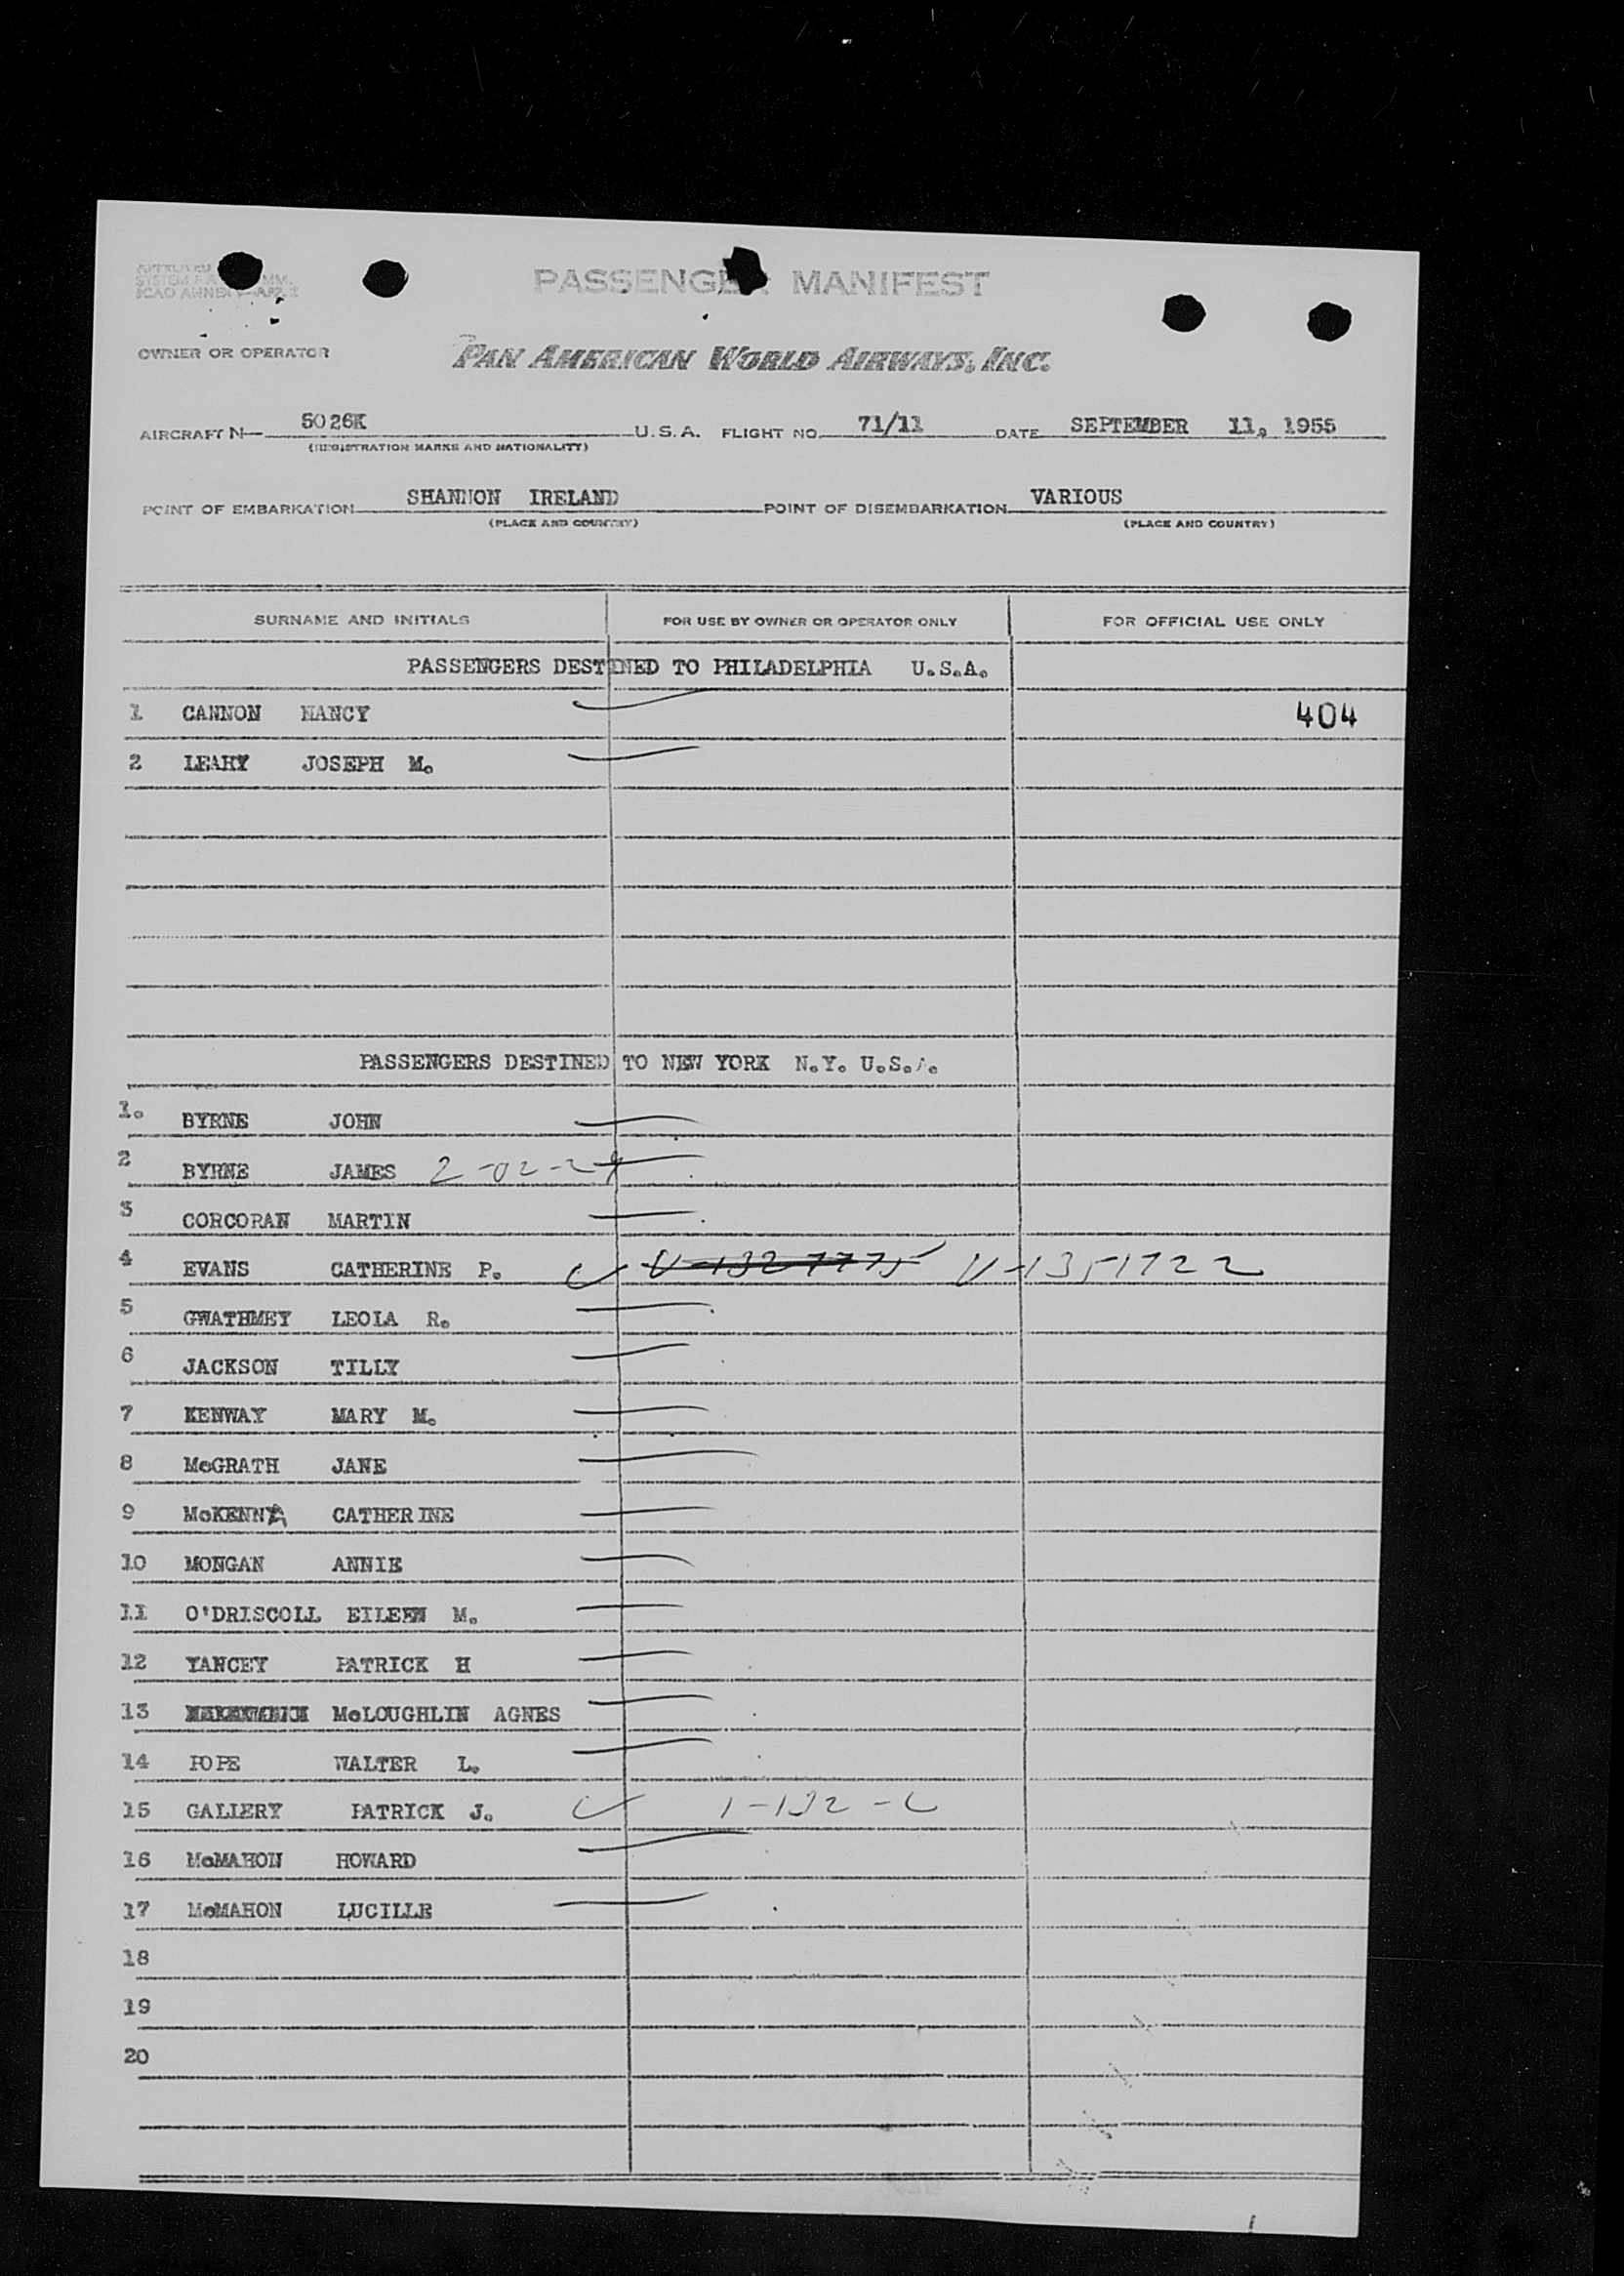 PASSENGER MANIFEST
OWNER OR OPERATOR PAN AMERICAN WORLD AIRWAYS, INC.
AIRCRAFT N— 5026K U.S.A. FLIGHT NO. 71/11 DATE SEPTEMBER 11, 1955
(REGISTRATION MARKS AND NATIONALITY)
POINT OF EMBARKATION SHANNON IRELAND POINT OF DISEMBARKATION VARIOUS
(PLACE AND COUNTRY) (PLACE AND COUNTRY)
SURNAME AND INITIALS FOR USE BY OWNER OR OPERATOR ONLY FOR OFFICIAL USE ONLY
PASSENGERS DESTINED TO PHILADELPHIA U.S.A.
1 CANNON NANCY 404
2 LEAHY JOSEPH M.
PASSENGERS DESTINED TO NEW YORK N.Y. U.S.A.
1. BYRNE JOHN
2 BYRNE JAMES
3 CORCORAN MARTIN
4 EVANS CATHERINE P. V-1327775 V-1351722
5 GWATHMEY LEOLA R.
6 JACKSON TILLY
7 KENWAY MARY M.
8 McGRATH JANE
9 McKENNA CATHERINE
10 MONGAN ANNIE
11 O'DRISCOLL EILEEN M.
12 YANCEY PATRICK H
13 McLOUGHLIN AGNES
14 POPE WALTER L.
15 GALLERY PATRICK J.
16 McMAHON HOWARD
17 McMAHON LUCILLE
18
19
20